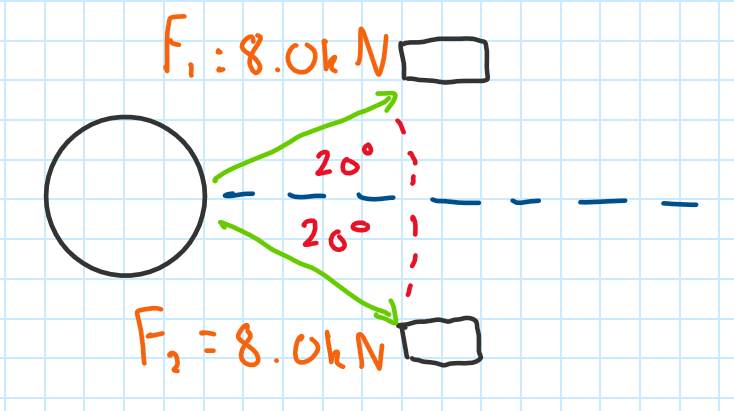 F₁ = 8.0kN
20°
20°
F₂ = 8.0kN